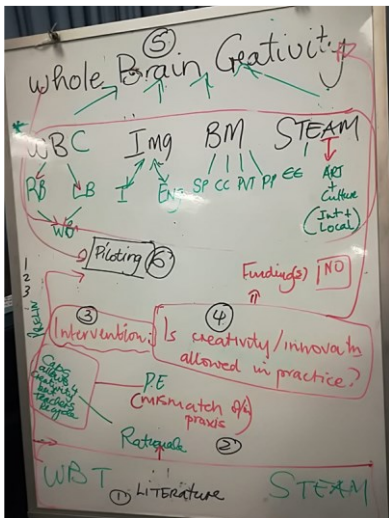 5
Whole Brain Creativity
WBC Img BM STEAM
RB LB I Eng SP CC PVT PP EE ART
+
Culture
(Int +
Local)
WB
Piloting 6
1
2
3
Funding(s) NO
3 4
Intervention: Is creativity/innovatn
allowed in practice?
CAPS
allows 4
creativity
but
teachers
P.E
(mismatch of
praxis)
Rationale 2
WBT 1 LITERATURE STEAM